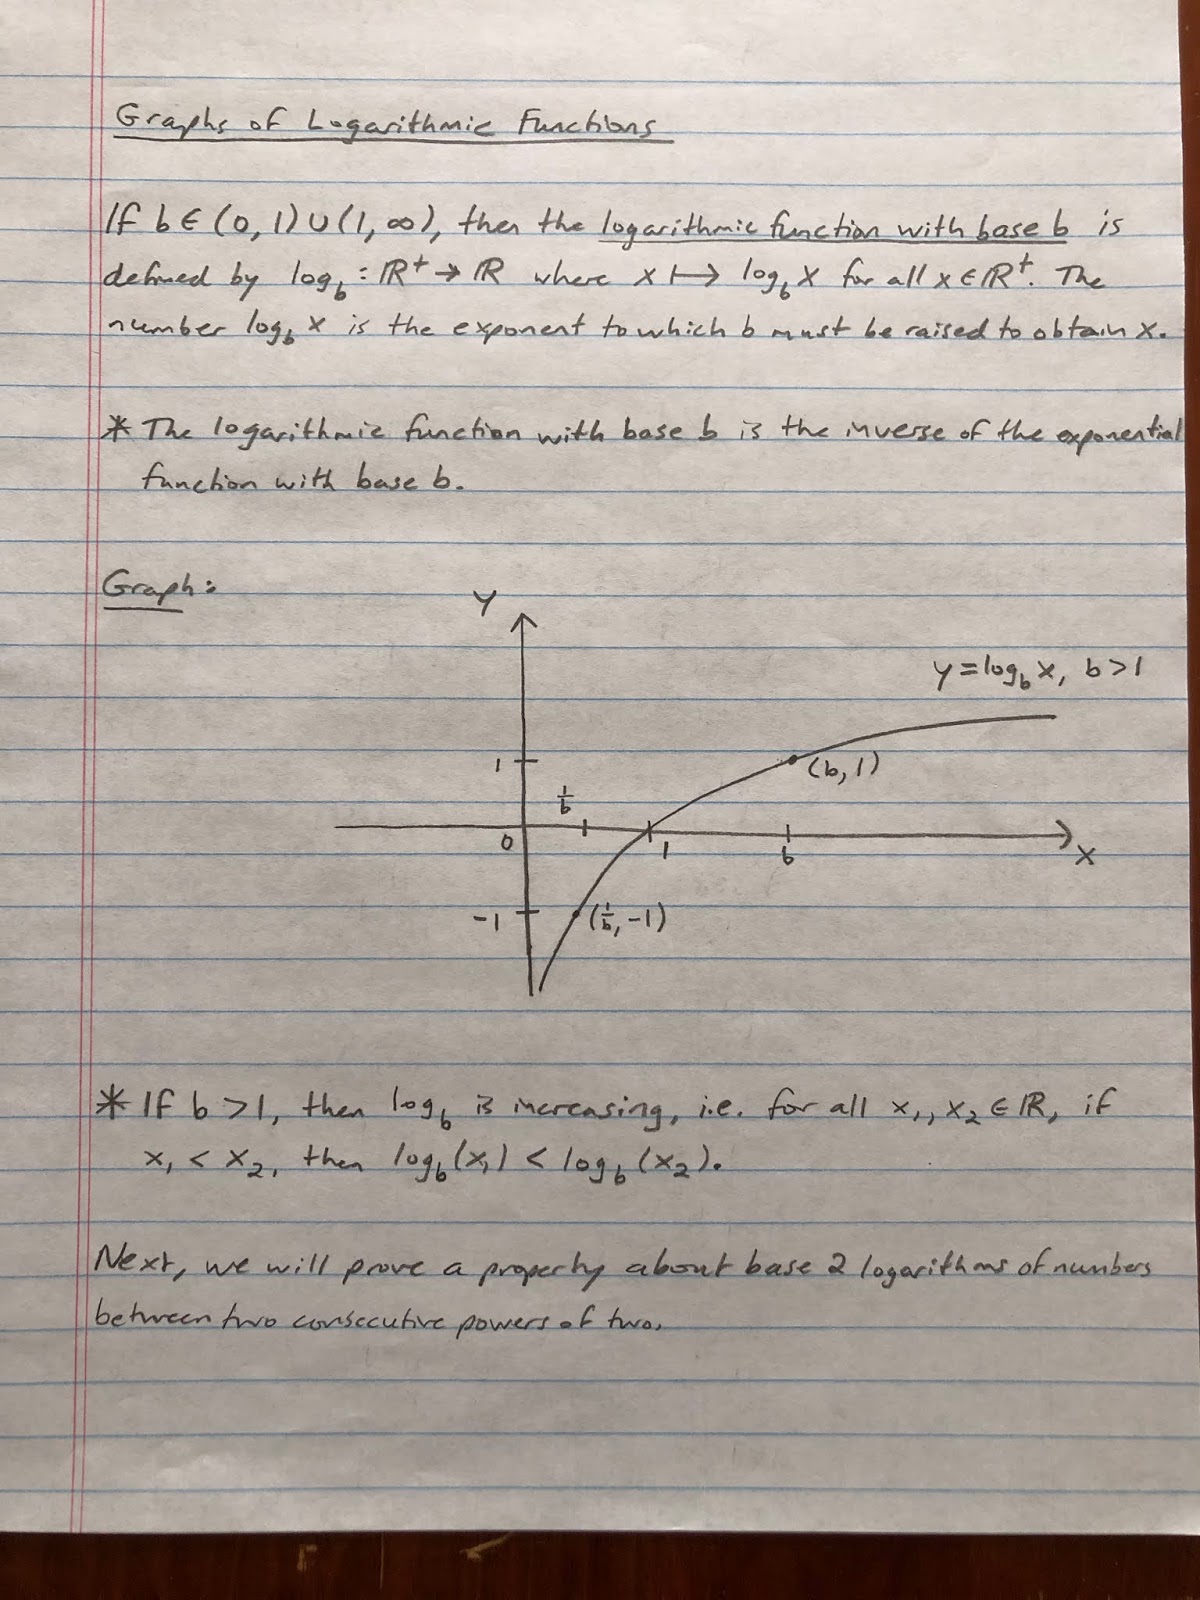 Graphs of Logarithmic Functions
If b ∈ (0, 1) ∪ (1, ∞), then the logarithmic function with base b is
defined by log_b : ℝ⁺ → ℝ where x ↦ log_b x for all x ∈ ℝ⁺. The
number log_b x is the exponent to which b must be raised to obtain x.
* The logarithmic function with base b is the inverse of the exponential
function with base b.
Graph:
y
y = log_b x, b > 1
1
(b, 1)
1/b
0
1
b
x
-1
(1/b, -1)
* If b > 1, then log_b is increasing, i.e. for all x₁, x₂ ∈ ℝ, if
x₁ < x₂, then log_b(x₁) < log_b(x₂).
Next, we will prove a property about base 2 logarithms of numbers
between two consecutive powers of two.